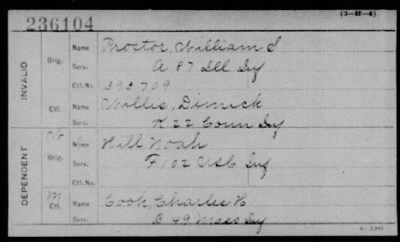 236104
(3-H-4)
INVALID
Orig.
Name Proctor, William S
Serv. A 87 Ill Inf
Ctf. No. 393709
Ctf.
Name Willis, Dimick
Serv. K 22 Conn Inf
DEPENDENT
Orig.
Name Hill, Noah
Serv. F 102 USC Inf
Ctf. No.
M
Ctf.
Name Cook, Charles H
Serv. B 49 Mass Inf